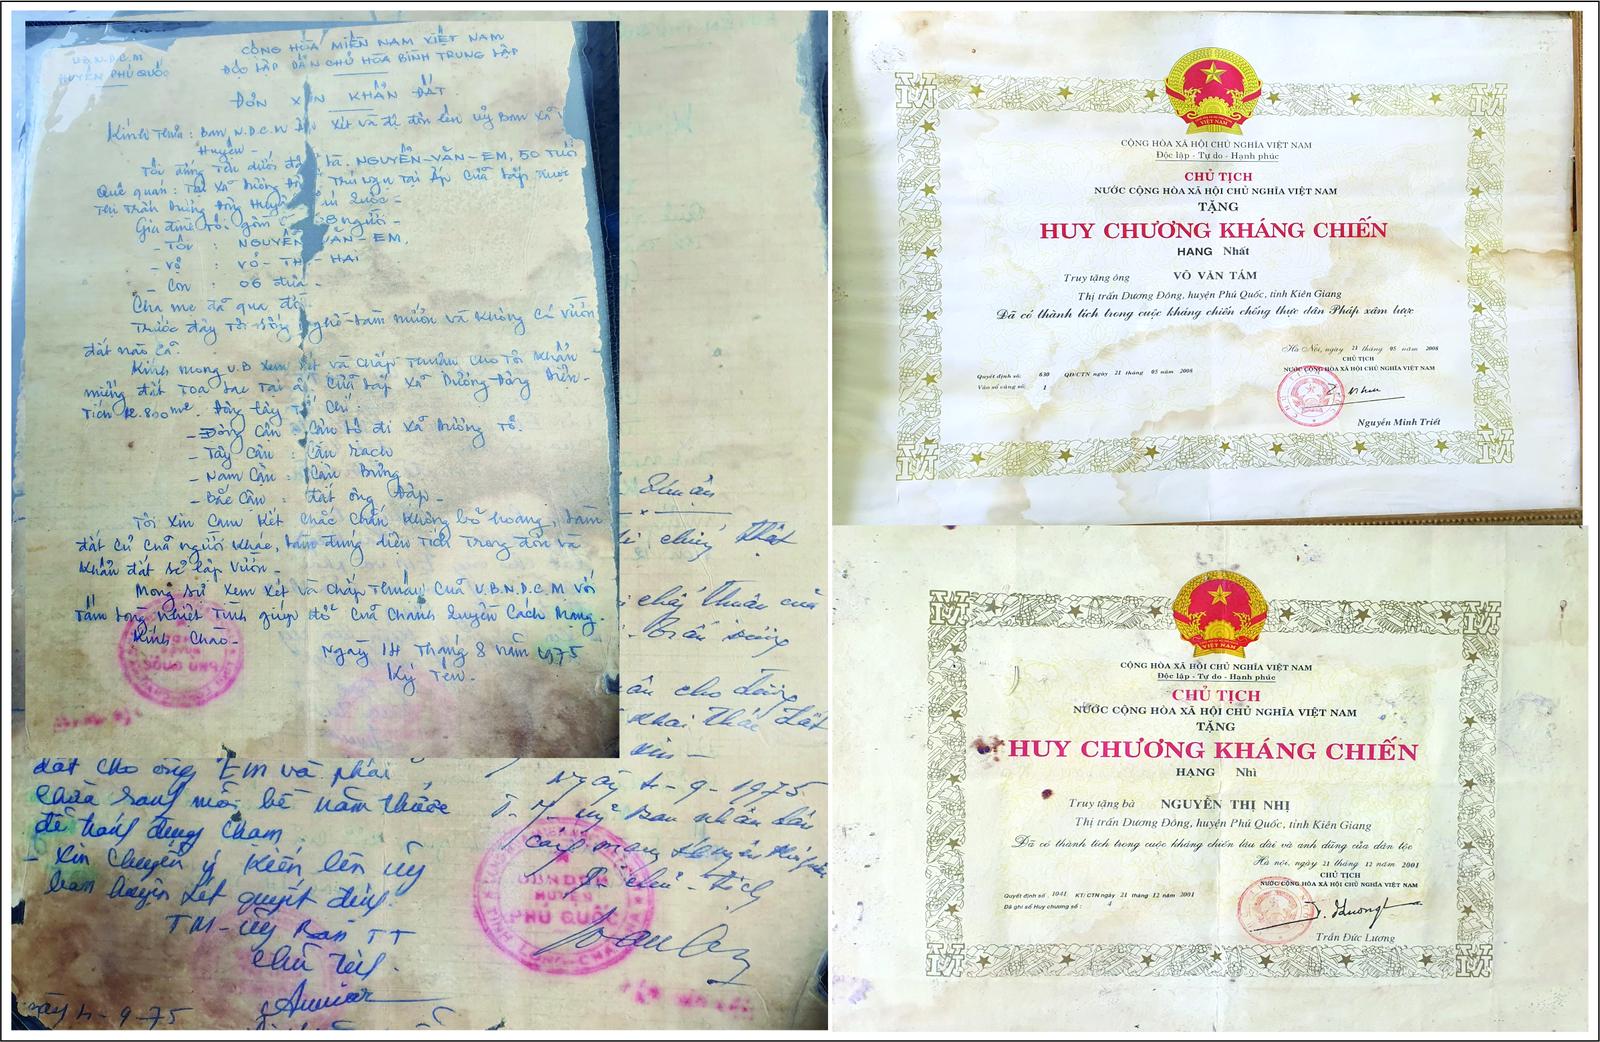 U.B.N.D.C.M
HUYỆN PHÚ QUỐC
CỘNG HÒA MIỀN NAM VIỆT NAM
ĐỘC LẬP DÂN CHỦ HÒA BÌNH TRUNG LẬP
ĐƠN XIN KHẨN ĐẤT
Kính Thưa: Ban N.D.C.M xét và đệ đơn lên uỷ Ban xã
Huyện -
Tôi đứng tên dưới đây là. NGUYỄN-VĂN-EM, 50 TUỔI
Quê quán: Tại xã Dương Đông Trú ngụ Tại ấp Cửa Lấp thuộc
Thị Trấn Dương Đông Huyện Phú Quốc -
Gia đình tôi gồm 08 người -
- Tôi : NGUYỄN VĂN-EM.
- Vợ : VÕ-THỊ-HAI
- Con : 06 đứa -
Cha mẹ đã qua đời
Trước đây Tôi sống nghề làm mướn và không có vườn
đất nào cả.
Kính mong U.B xem xét và chấp Thuận cho Tôi khẩn
miếng đất Toạ lạc Tại ấp Cửa Lấp xã Dương-Đông Diện-
Tích 12.800m². Đông tây Tứ Chí:
- Đông Cận : Cận lộ đi xã Dương Tơ.
- Tây Cận : Cận rạch
- Nam Cận : Cận Bưng
- Bắc Cận : đất ông Đáp -
Tôi xin Cam kết chắc chắn không bỏ hoang, làm
đất cũ của người khác, làm đúng diện tích trong đơn và
khẩn đất sẽ lập vườn -
Mong sự xem xét và chấp Thuận của U.B.N.D.C.M với
Tấm lòng nhiệt Tình giúp đỡ của Chánh Quyền Cách Mạng.
Kính Chào -
Ngày 14 Tháng 8 năm 1975
Ký Tên.
HUYỆN
PHÚ QUỐC
chiếu thật
chấp thuận của
cho dùng
khai thác đất
xin -
Ngày 4-9-1975
T.M uỷ ban nhân dân
cách mạng Huyện Phú Quốc
chủ-tịch
UBNDCM
HUYỆN
PHÚ QUỐC
đất cho ông Em và phải
chừa rạng mỗi bề năm thước
- Xin chuyển ý kiến lên Uỷ
ban huyện xét quyết định.
TM-Uỷ Ban TT
Chủ Tịch.
ngày 4-9-75
VIỆT NAM
CỘNG HÒA XÃ HỘI CHỦ NGHĨA VIỆT NAM
Độc lập - Tự do - Hạnh phúc
CHỦ TỊCH
NƯỚC CỘNG HÒA XÃ HỘI CHỦ NGHĨA VIỆT NAM
TẶNG
HUY CHƯƠNG KHÁNG CHIẾN
HẠNG Nhất
Truy tặng ông VÕ VĂN TÁM
Thị trấn Dương Đông, huyện Phú Quốc, tỉnh Kiên Giang
Đã có thành tích trong cuộc kháng chiến chống thực dân Pháp xâm lược
Hà Nội, ngày 21 tháng 05 năm 2008
CHỦ TỊCH
NƯỚC CỘNG HÒA XÃ HỘI CHỦ NGHĨA VIỆT NAM
Quyết định số: 630 QĐ/CTN ngày 21 tháng 05 năm 2008
Vào sổ vàng số: 1
Nguyễn Minh Triết
VIỆT NAM
CỘNG HÒA XÃ HỘI CHỦ NGHĨA VIỆT NAM
Độc lập - Tự do - Hạnh phúc
CHỦ TỊCH
NƯỚC CỘNG HÒA XÃ HỘI CHỦ NGHĨA VIỆT NAM
TẶNG
HUY CHƯƠNG KHÁNG CHIẾN
HẠNG Nhì
Truy tặng bà NGUYỄN THỊ NHỊ
Thị trấn Dương Đông, huyện Phú Quốc, tỉnh Kiên Giang
Đã có thành tích trong cuộc kháng chiến lâu dài và anh dũng của dân tộc
Hà nội, ngày 21 tháng 12 năm 2001
CHỦ TỊCH
NƯỚC CỘNG HÒA XÃ HỘI CHỦ NGHĨA VIỆT NAM
Quyết định số 1041 KT/CTN ngày 21 tháng 12 năm 2001
Đã ghi sổ Huy chương số: 4
Trần Đức Lương